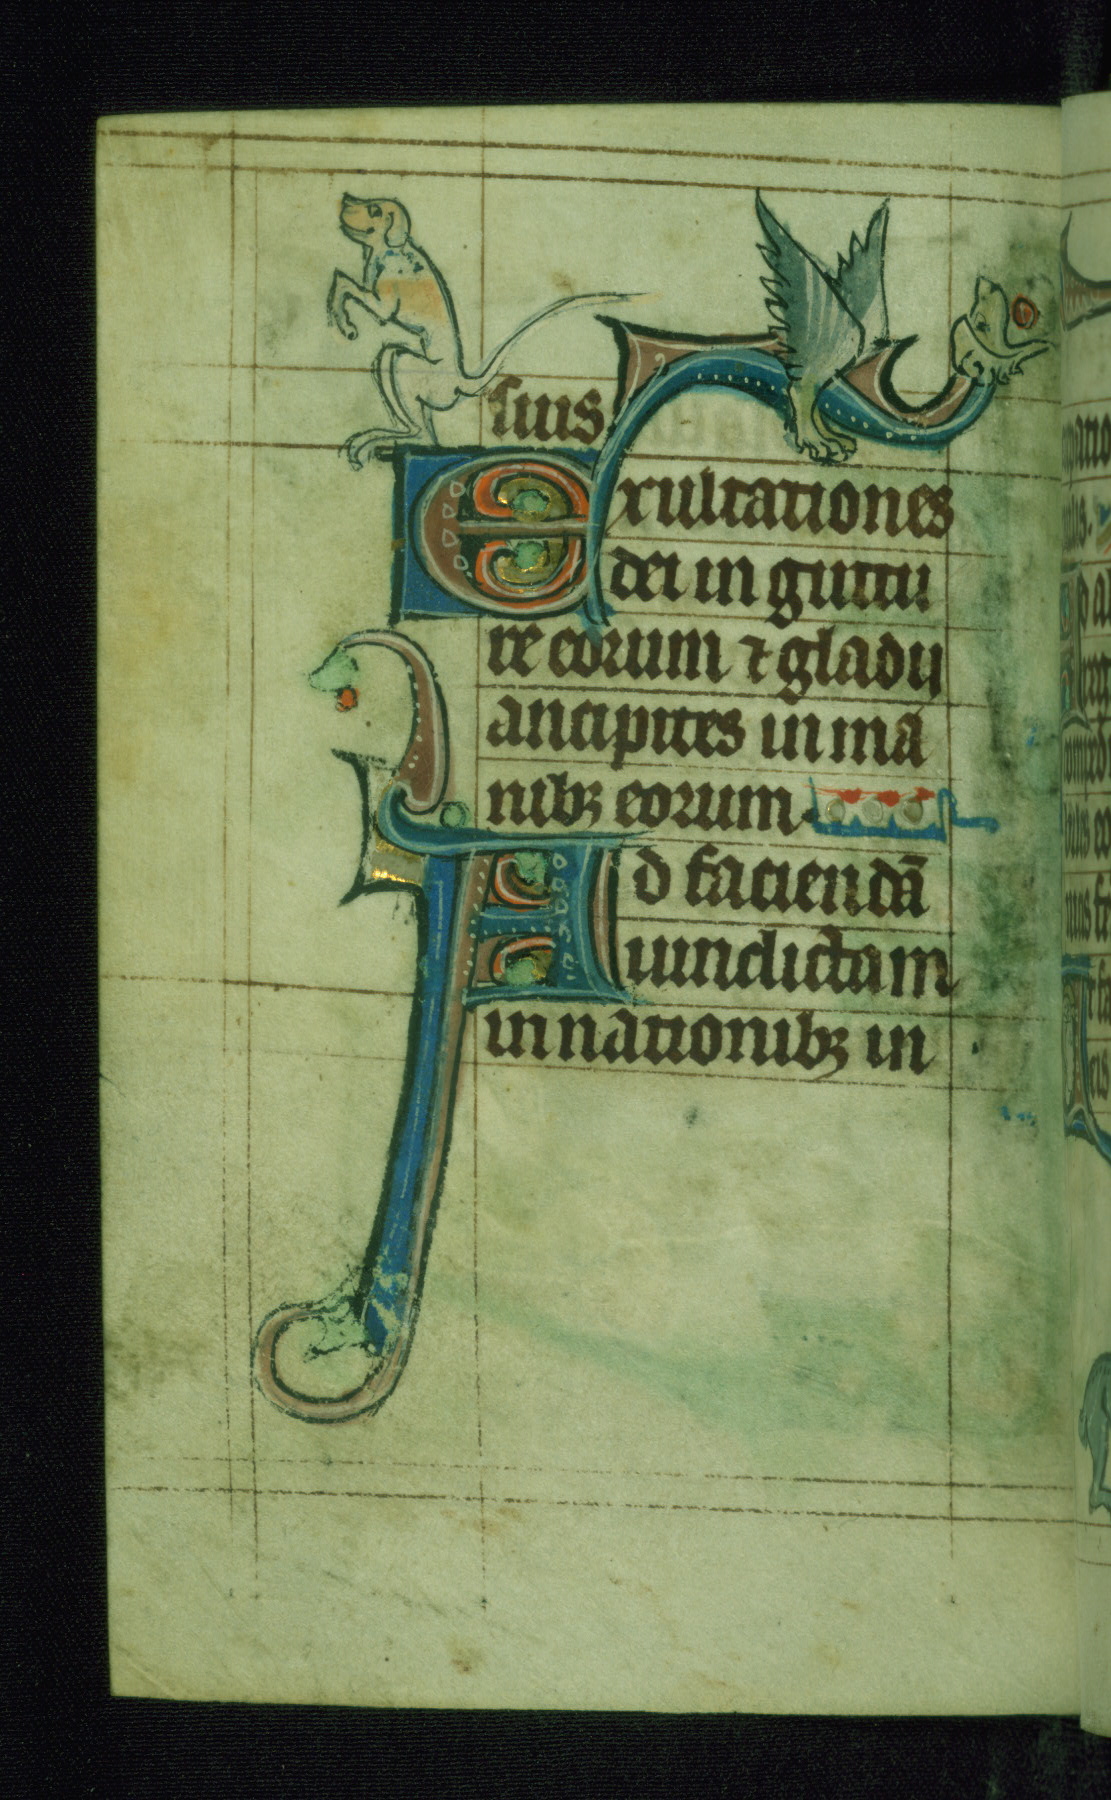 suis
Exultationes
dei in guttu
re eorum ⁊ gladii
ancipites in ma
nibꝫ eorum.
Ad faciendā
uindictam
in nationibꝫ in